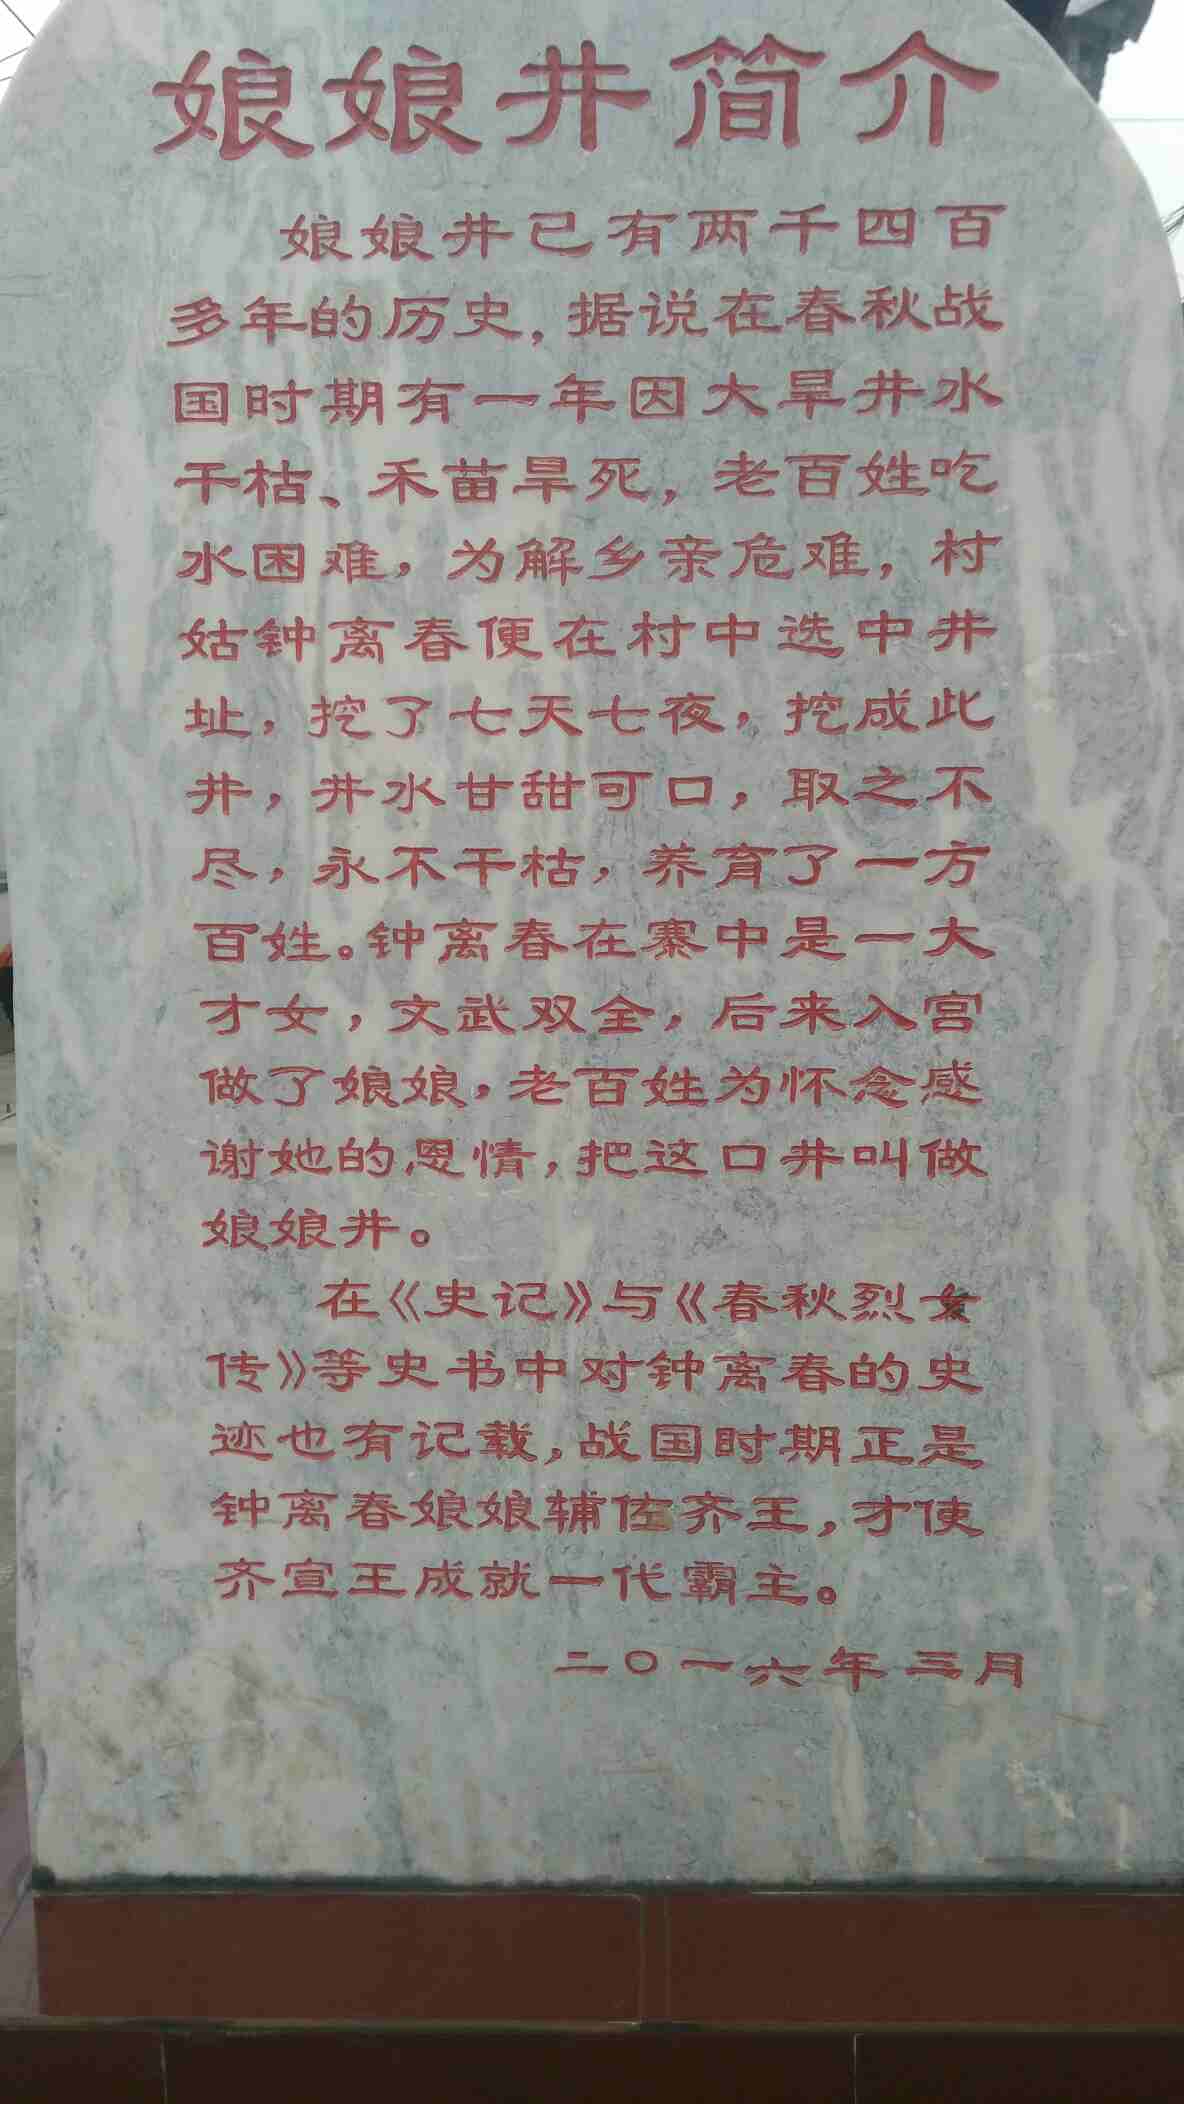 娘娘井简介
娘娘井已有两千四百
多年的历史，据说在春秋战
国时期有一年因大旱井水
干枯、禾苗旱死，老百姓吃
水困难，为解乡亲危难，村
姑钟离春便在村中选中井
址，挖了七天七夜，挖成此
井，井水甘甜可口，取之不
尽，永不干枯，养育了一方
百姓。钟离春在寨中是一大
才女，文武双全，后来入宫
做了娘娘，老百姓为怀念感
谢她的恩情，把这口井叫做
娘娘井。
在《史记》与《春秋烈女
传》等史书中对钟离春的史
迹也有记载，战国时期正是
钟离春娘娘辅佐齐王，才使
齐宣王成就一代霸主。
二〇一六年三月